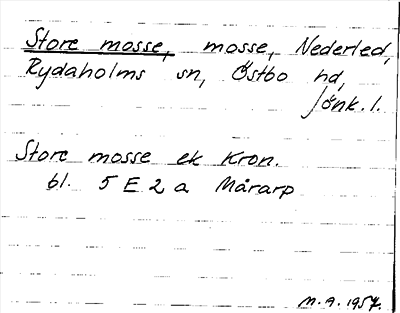 Store mosse, mosse, Nederled,
Rydaholms sn, Östbo hd,
Jönk. l.
Store mosse ek Kron.
bl. 5 E 2 a Mårarp
M.A. 1957.